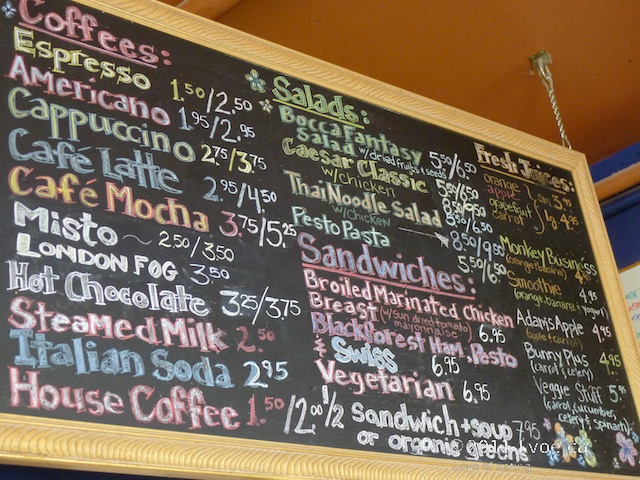 Coffees:
Espresso 1.50/2.50
Americano 1.95/2.95
Cappuccino 2.75/3.75
Café Latte 2.95/4.50
Café Mocha 3.75/5.25
Misto ~ 2.50/3.50
London Fog 3.50
Hot Chocolate 3.25/3.75
Steamed Milk 2.50
Italian Soda 2.95
House Coffee 1.50/2.00
Salads:
Bocca Fantasy
Salad w/dried fruits & seeds 5.50/6.50
Caesar Classic 5.50/6.50
w/chicken 8.50/9.50
Thai Noodle Salad 5.50/6.50
w/chicken 8.50/9.50
Pesto Pasta 5.50/6.50
Sandwiches:
Broiled Marinated Chicken
Breast (w/sun dried tomato
mayonnaise) 6.95
Black Forest Ham, Pesto
& Swiss 6.95
Vegetarian 6.95
1/2 Sandwich + soup 7.95
or organic greens
Fresh Juices:
orange
apple
grapefruit
carrot
sm 3.95
lg 4.95
Monkey Business
Smoothie 4.95
(orange, banana + yogurt)
Adam's Apple 4.95
(apple + carrot)
Bunny Plus 4.95
(carrot & celery)
Veggie Stuff
(carrot, cucumber,
celery & spinach)